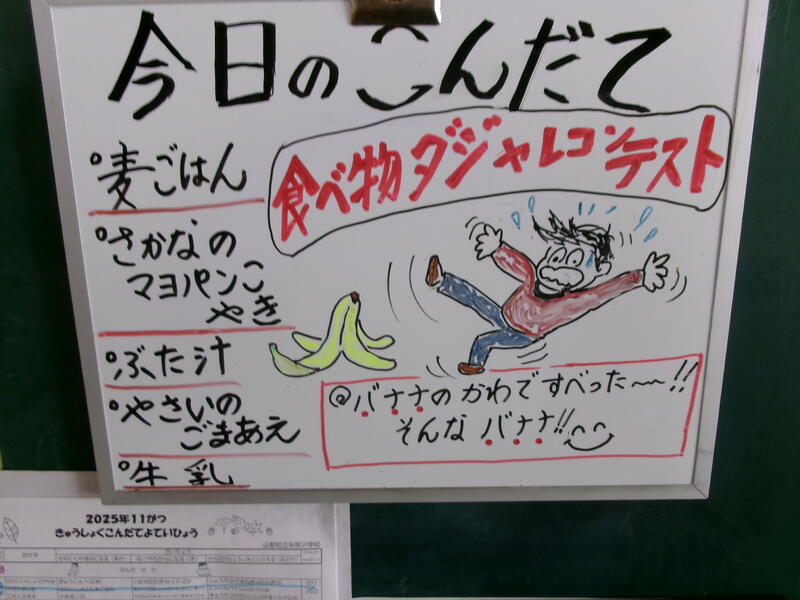 今日のこんだて
食べ物ダジャレコンテスト
°麦ごはん
°さかなの
マヨパンこ
やき
°ぶた汁
°やさいの
ごまあえ
°牛乳
@バナナのかわですべった〜〜!!
そんなバナナ!!
2025年11がつ
きゅうしょくこんだてよていひょう